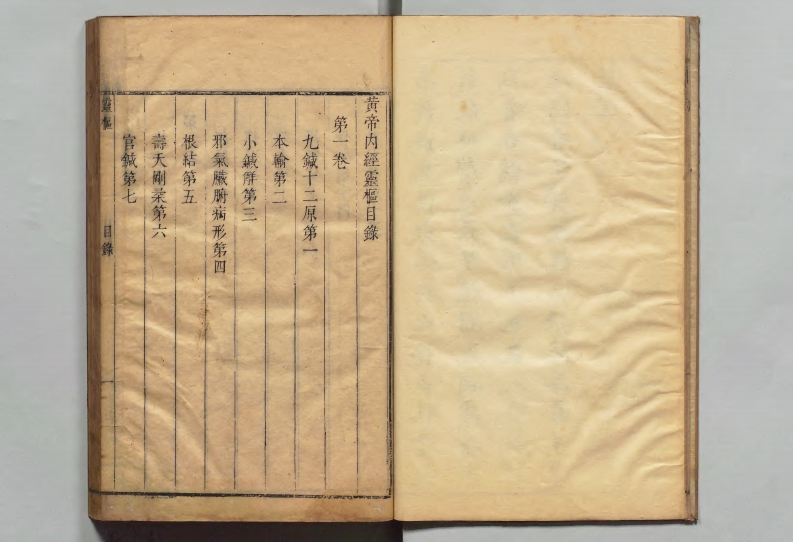 黄帝内經靈樞目錄
第一卷
九鍼十二原第一
本輸第二
小鍼解第三
邪氣臟腑病形第四
根結第五
壽夭剛柔第六
官鍼第七
靈樞 目錄 一